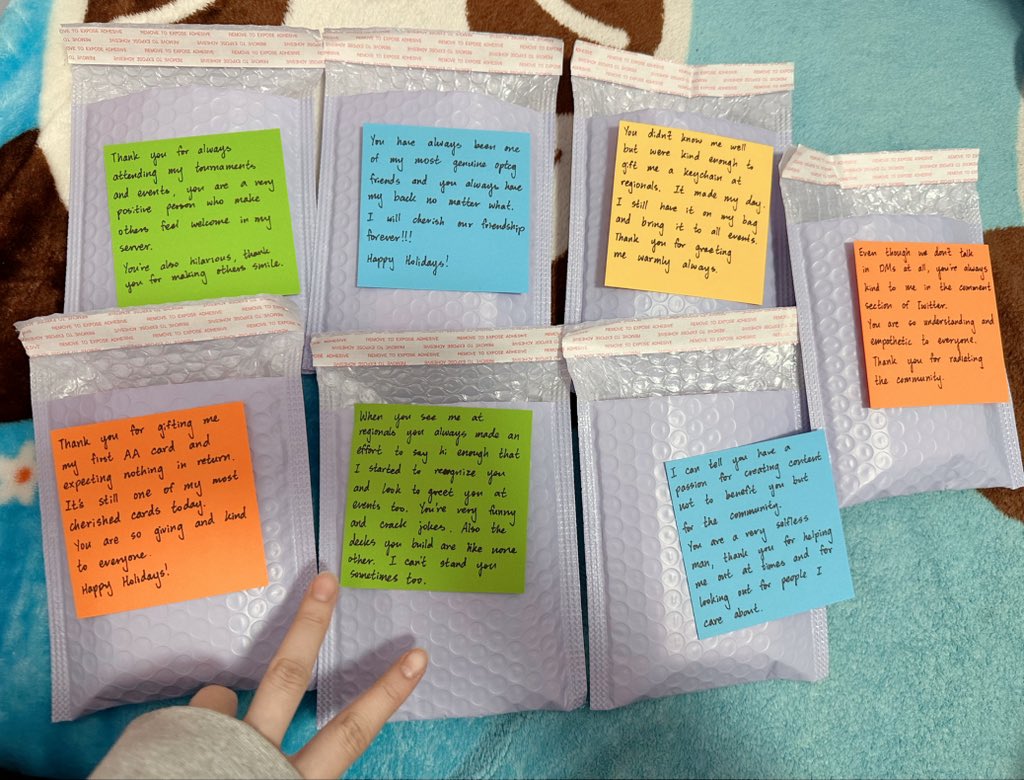 REMOVE TO EXPOSE ADHESIVE
Thank you for always
attending my tournaments
and events, you are a very
positive person who make
others feel welcome in my
server.
You're also hilarious, thank
you for making others smile.
REMOVE TO EXPOSE ADHESIVE
You have always been one
of my most genuine optcg
friends and you always have
my back no matter what.
I will cherish our friendship
forever!!!
Happy Holidays!
REMOVE TO EXPOSE ADHESIVE
You didn't know me well
but were kind enough to
gift me a keychain at
regionals. It made my day.
I still have it on my bag
and bring it to all events.
Thank you for greeting
me warmly always.
REMOVE TO EXPOSE ADHESIVE
Even though we don't talk
in DMs at all, you're always
kind to me in the comment
section of Twitter.
You are so understanding and
empathetic to everyone.
Thank you for radiating
the community.
REMOVE TO EXPOSE ADHESIVE
Thank you for gifting me
my first AA card and
expecting nothing in return.
It's still one of my most
cherished cards today.
You are so giving and kind
to everyone.
Happy Holidays!
REMOVE TO EXPOSE ADHESIVE
When you see me at
regionals you always made an
effort to say hi enough that
I started to recognize you
and look to greet you at
events too. You're very funny
and crack jokes. Also the
decks you build are like none
other. I can't stand you
sometimes too.
REMOVE TO EXPOSE ADHESIVE
I can tell you have a
passion for creating content
not to benefit you but
for the community.
You are a very selfless
man, thank you for helping
me out at times and for
looking out for people I
care about.